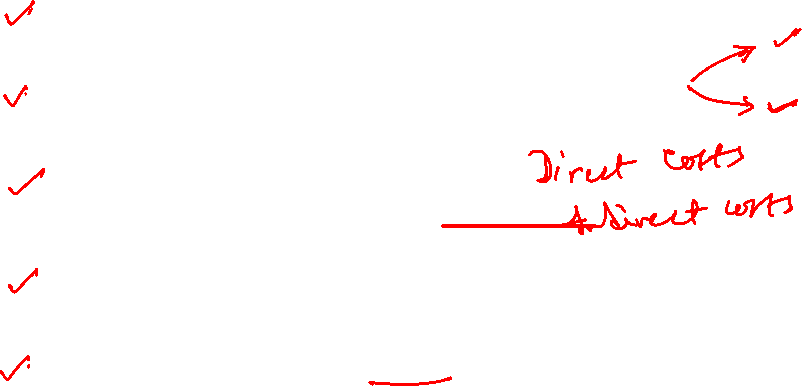 Direct costs
Indirect costs